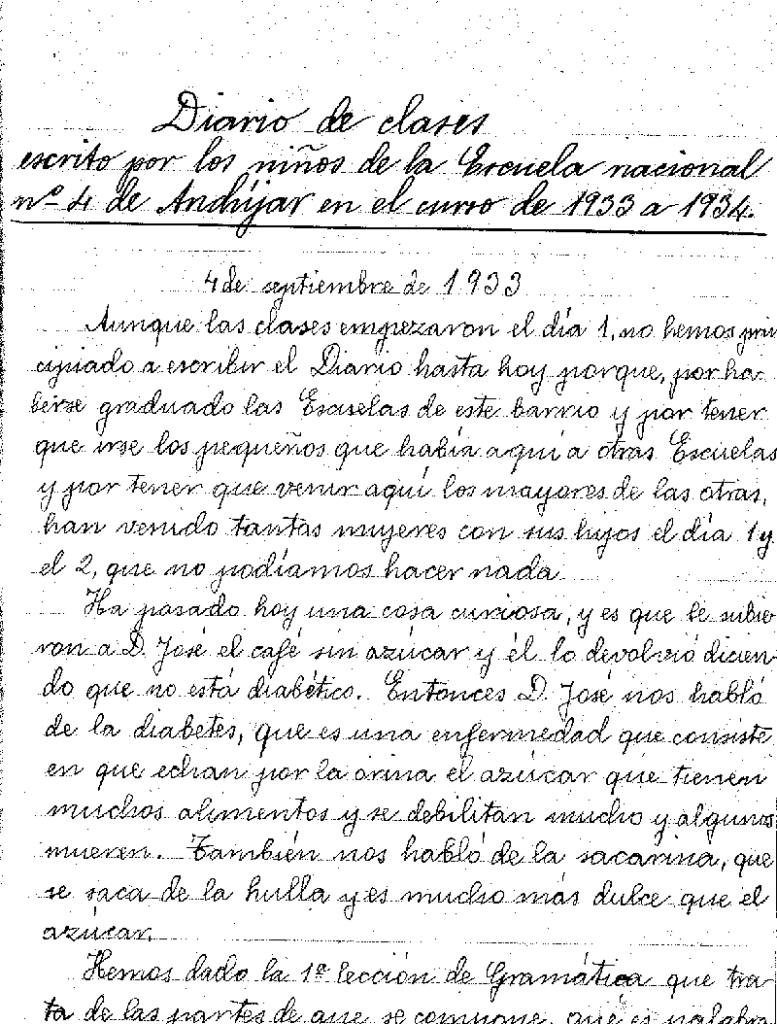 Diario de clases
escrito por los niños de la Escuela nacional
nº 4 de Andújar en el curso de 1933 a 1934.
4 de septiembre de 1933
Aunque las clases empezaron el día 1, no hemos prin
cipiado a escribir el Diario hasta hoy porque, por ha-
berse graduado las Escuelas de este barrio y por tener
que irse los pequeños que había aquí a otras Escuelas
y por tener que venir aquí los mayores de las otras,
han venido tantas mujeres con sus hijos el día 1 y
el 2, que no podíamos hacer nada
Ha pasado hoy una cosa curiosa, y es que le subie
ron a D. José el café sin azúcar y él lo devolvió dicien-
do que no está diabético. Entonces D. José nos habló
de la diabetes, que es una enfermedad que consiste
en que echan por la orina el azúcar que tienen
muchos alimentos y se debilitan mucho y algunos
mueren. También nos habló de la sacarina, que
se saca de la hulla y es mucho más dulce que el
azúcar.
Hemos dado la 1ª lección de Gramática que tra-
ta de las partes de que se compone, qué es palabra